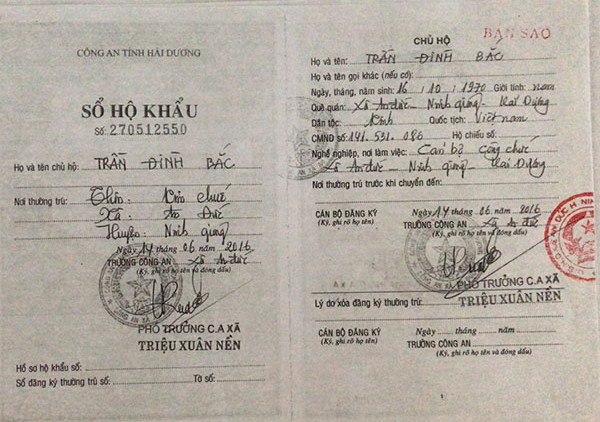 CÔNG AN TỈNH HẢI DƯƠNG
SỔ HỘ KHẨU
Số: 270512550
Họ và tên chủ hộ: TRẦN ĐÌNH BẮC
Nơi thường trú: Thôn
Xã An Đức
Huyện Ninh giang
Ngày 14 tháng 06 năm 2016
TRƯỞNG CÔNG AN
(Ký, ghi rõ họ tên và đóng dấu)
PHÓ TRƯỞNG C.A XÃ
TRIỆU XUÂN NÊN
Hồ sơ hộ khẩu số:
Sổ đăng ký thường trú số: Tờ số:
BẢN SAO
CHỦ HỘ
Họ và tên: TRẦN ĐÌNH BẮC
Họ và tên gọi khác (nếu có):
Ngày, tháng, năm sinh: 16 / 10 / 1970 Giới tính: nam
Quê quán: Xã An đức - Ninh giang - Hải Dương
Dân tộc: Kinh Quốc tịch: Việt nam
CMND số: 141.531.086 Hộ chiếu số:
Nghề nghiệp, nơi làm việc: Cán bộ Công chức
Xã An đức - Ninh giang - Hải Dương
Nơi thường trú trước khi chuyển đến:
Ngày 14 tháng 06 năm 2016
CÁN BỘ ĐĂNG KÝ TRƯỞNG CÔNG AN Xã An đức
(Ký, ghi rõ họ tên) (Ký, ghi rõ họ tên và đóng dấu)
PHÓ TRƯỞNG C.A XÃ
TRIỆU XUÂN NÊN
Lý do xóa đăng ký thường trú:
Ngày ..... tháng ..... năm .....
CÁN BỘ ĐĂNG KÝ TRƯỞNG CÔNG AN
(Ký, ghi rõ họ tên) (Ký, ghi rõ họ tên và đóng dấu)